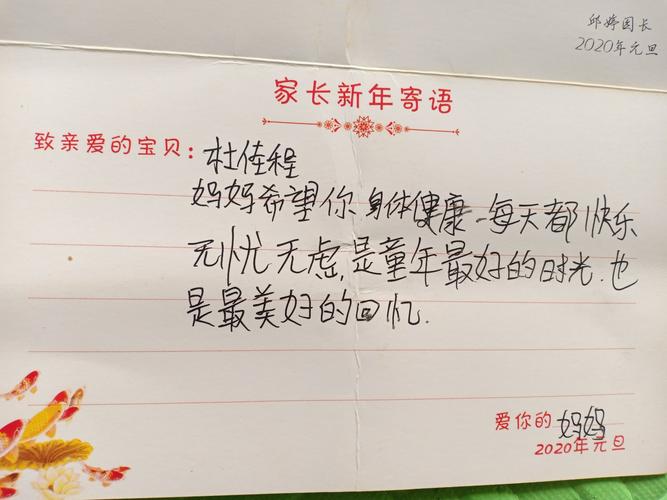 邱婷园长
2020年元旦
家长新年寄语
致亲爱的宝贝：杜佳程
妈妈希望你身体健康、每天都快乐
无忧无虑，是童年最好的时光.也
是最美好的回忆.
爱你的 妈妈
2020年元旦